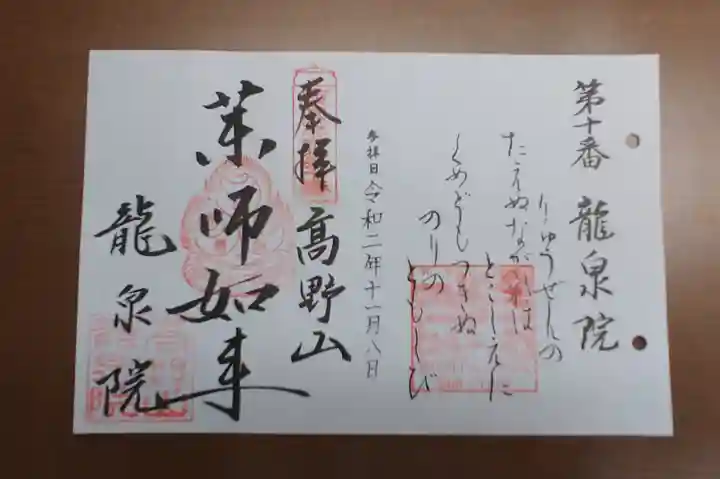 第十番 龍泉院
りゅうぜんの
たえぬながれは
とこしえに
くめどもつきぬ
のりの
ともしび
参拝日 令和二年十一月八日
奉拝 高野山
薬師如来
龍泉院